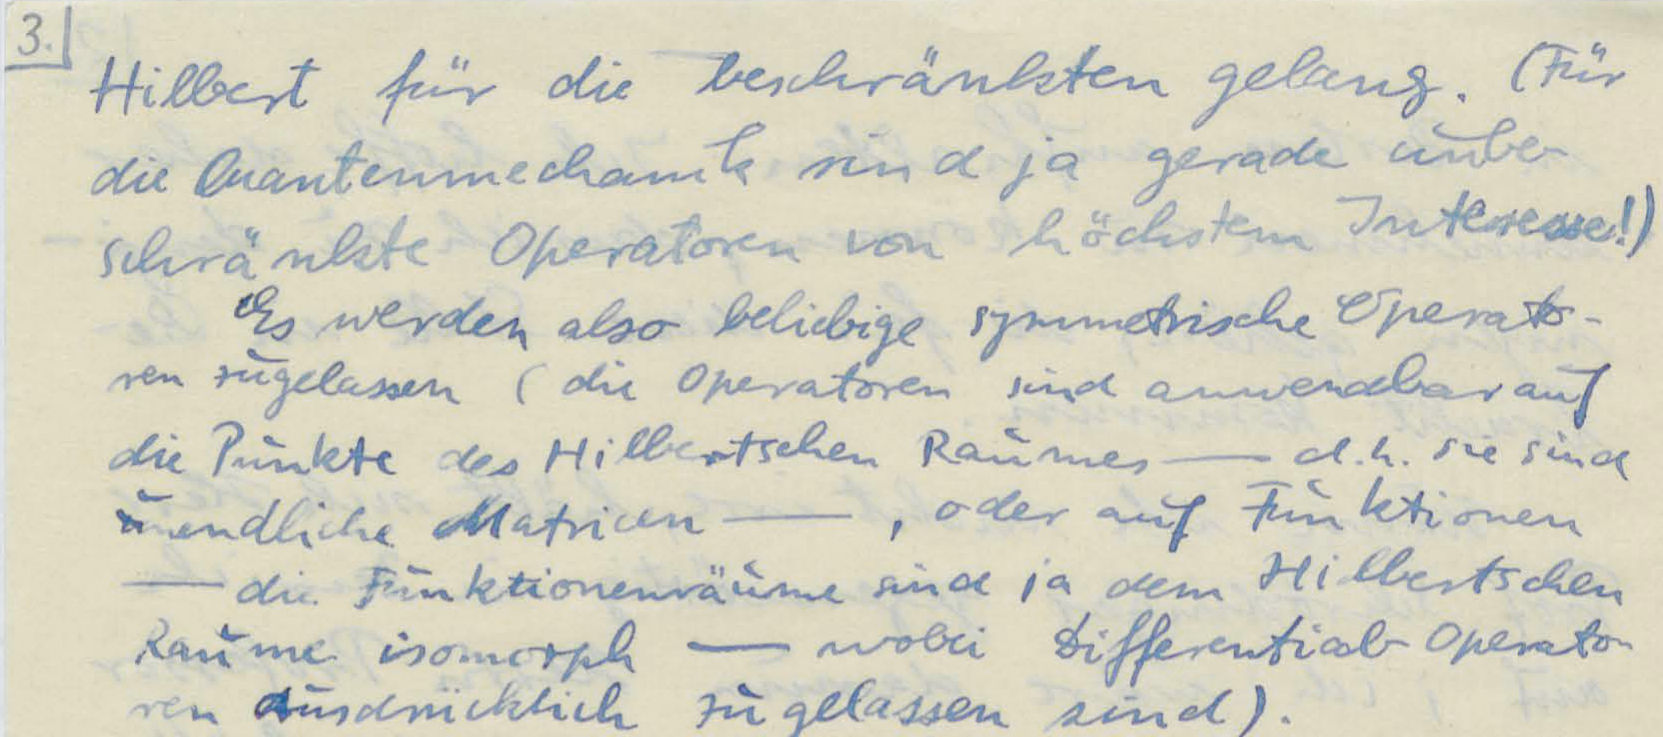 3.
Hilbert für die beschränkten gelang. (Für
die Quantenmechanik sind ja gerade unbe-
schränkte Operatoren von höchstem Interesse!)
Es werden also beliebige symmetrische Operato-
ren zugelassen (die Operatoren sind anwendbar auf
die Punkte des Hilbertschen Raumes — d.h. sie sind
unendliche Matricen — , oder auf Funktionen
— die Funktionenräume sind ja dem Hilbertschen
Raume isomorph — wobei Differential-Operato-
ren ausdrücklich zugelassen sind).